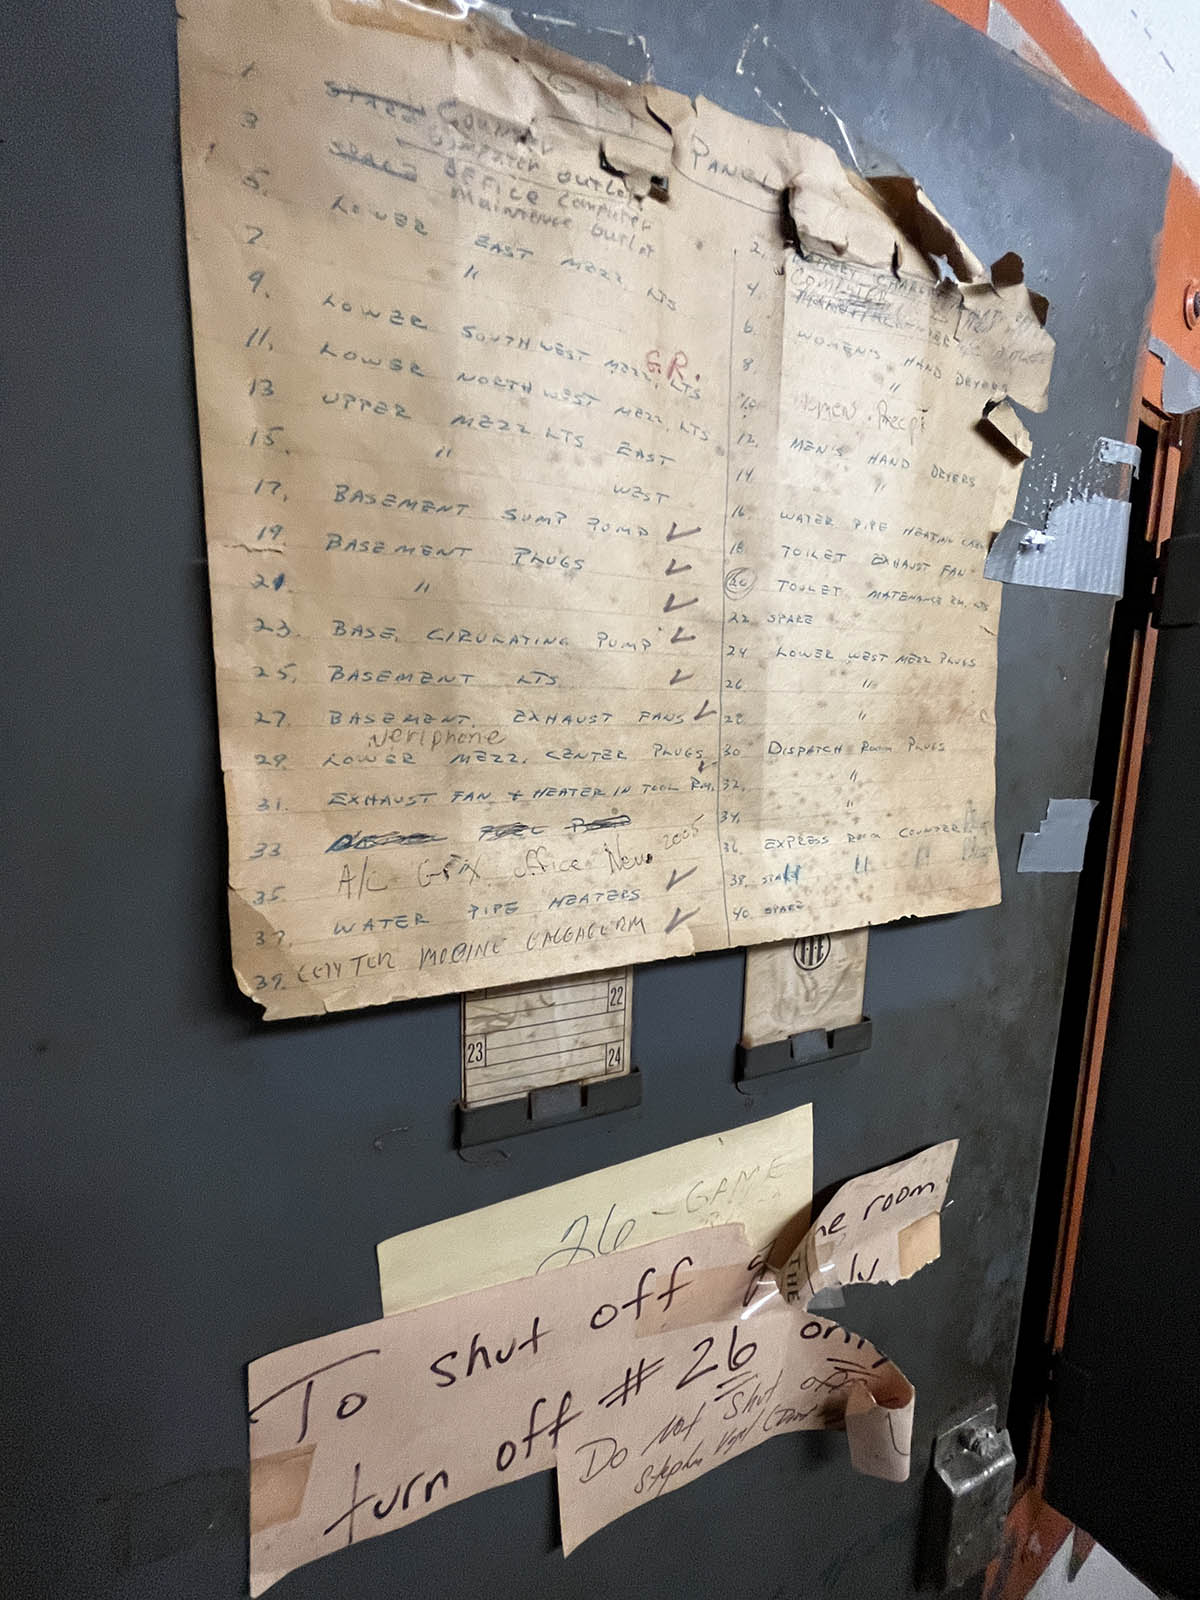 PANEL
1 SPACE COUNTER
COMPUTER OUTLETS
3 SPACE OFFICE COMPUTER
MAINTENCE OUTLET
5. LOWER EAST MEZZ. LTS
7. "
9. LOWER SOUTHWEST MEZZ. LTS
G.R.
11. LOWER NORTHWEST MEZZ. LTS
13 UPPER MEZZ. LTS EAST
15. " WEST
17. BASEMENT SUMP PUMP ✓
19. BASEMENT PLUGS ✓
21. " ✓
23. BASE. CIRULATING PUMP ✓
25. BASEMENT LTS ✓
27. BASEMENT. EXHAUST FANS ✓
Veriphone
29. LOWER MEZZ. CENTER PLUGS ✓
31. EXHAUST FAN & HEATER IN TOOL RM.
33. FUEL
A/C Office New 2005
35. WATER PIPE HEATERS ✓
37. ✓
39. CENTER
2.
4. COMPUTER
6. WOMEN'S HAND DRYERS
8. "
10. WOMEN Recept
12. MEN'S HAND DRYERS
14 "
16 WATER PIPE HEATING
18. TOILET EXHAUST FAN
20 TOILET MATENANCE RM. LTS
22 SPARE
24 LOWER WEST MEZZ PLUGS
26 "
28 "
30 DISPATCH ROOM PLUGS
32. "
34. "
36. EXPRESS ROOM COUNTER
38. " " "
40. SPARE
22
23
24
26 - GAME
To shut off
me room
THE
turn off #26 only
Do Not Shut off